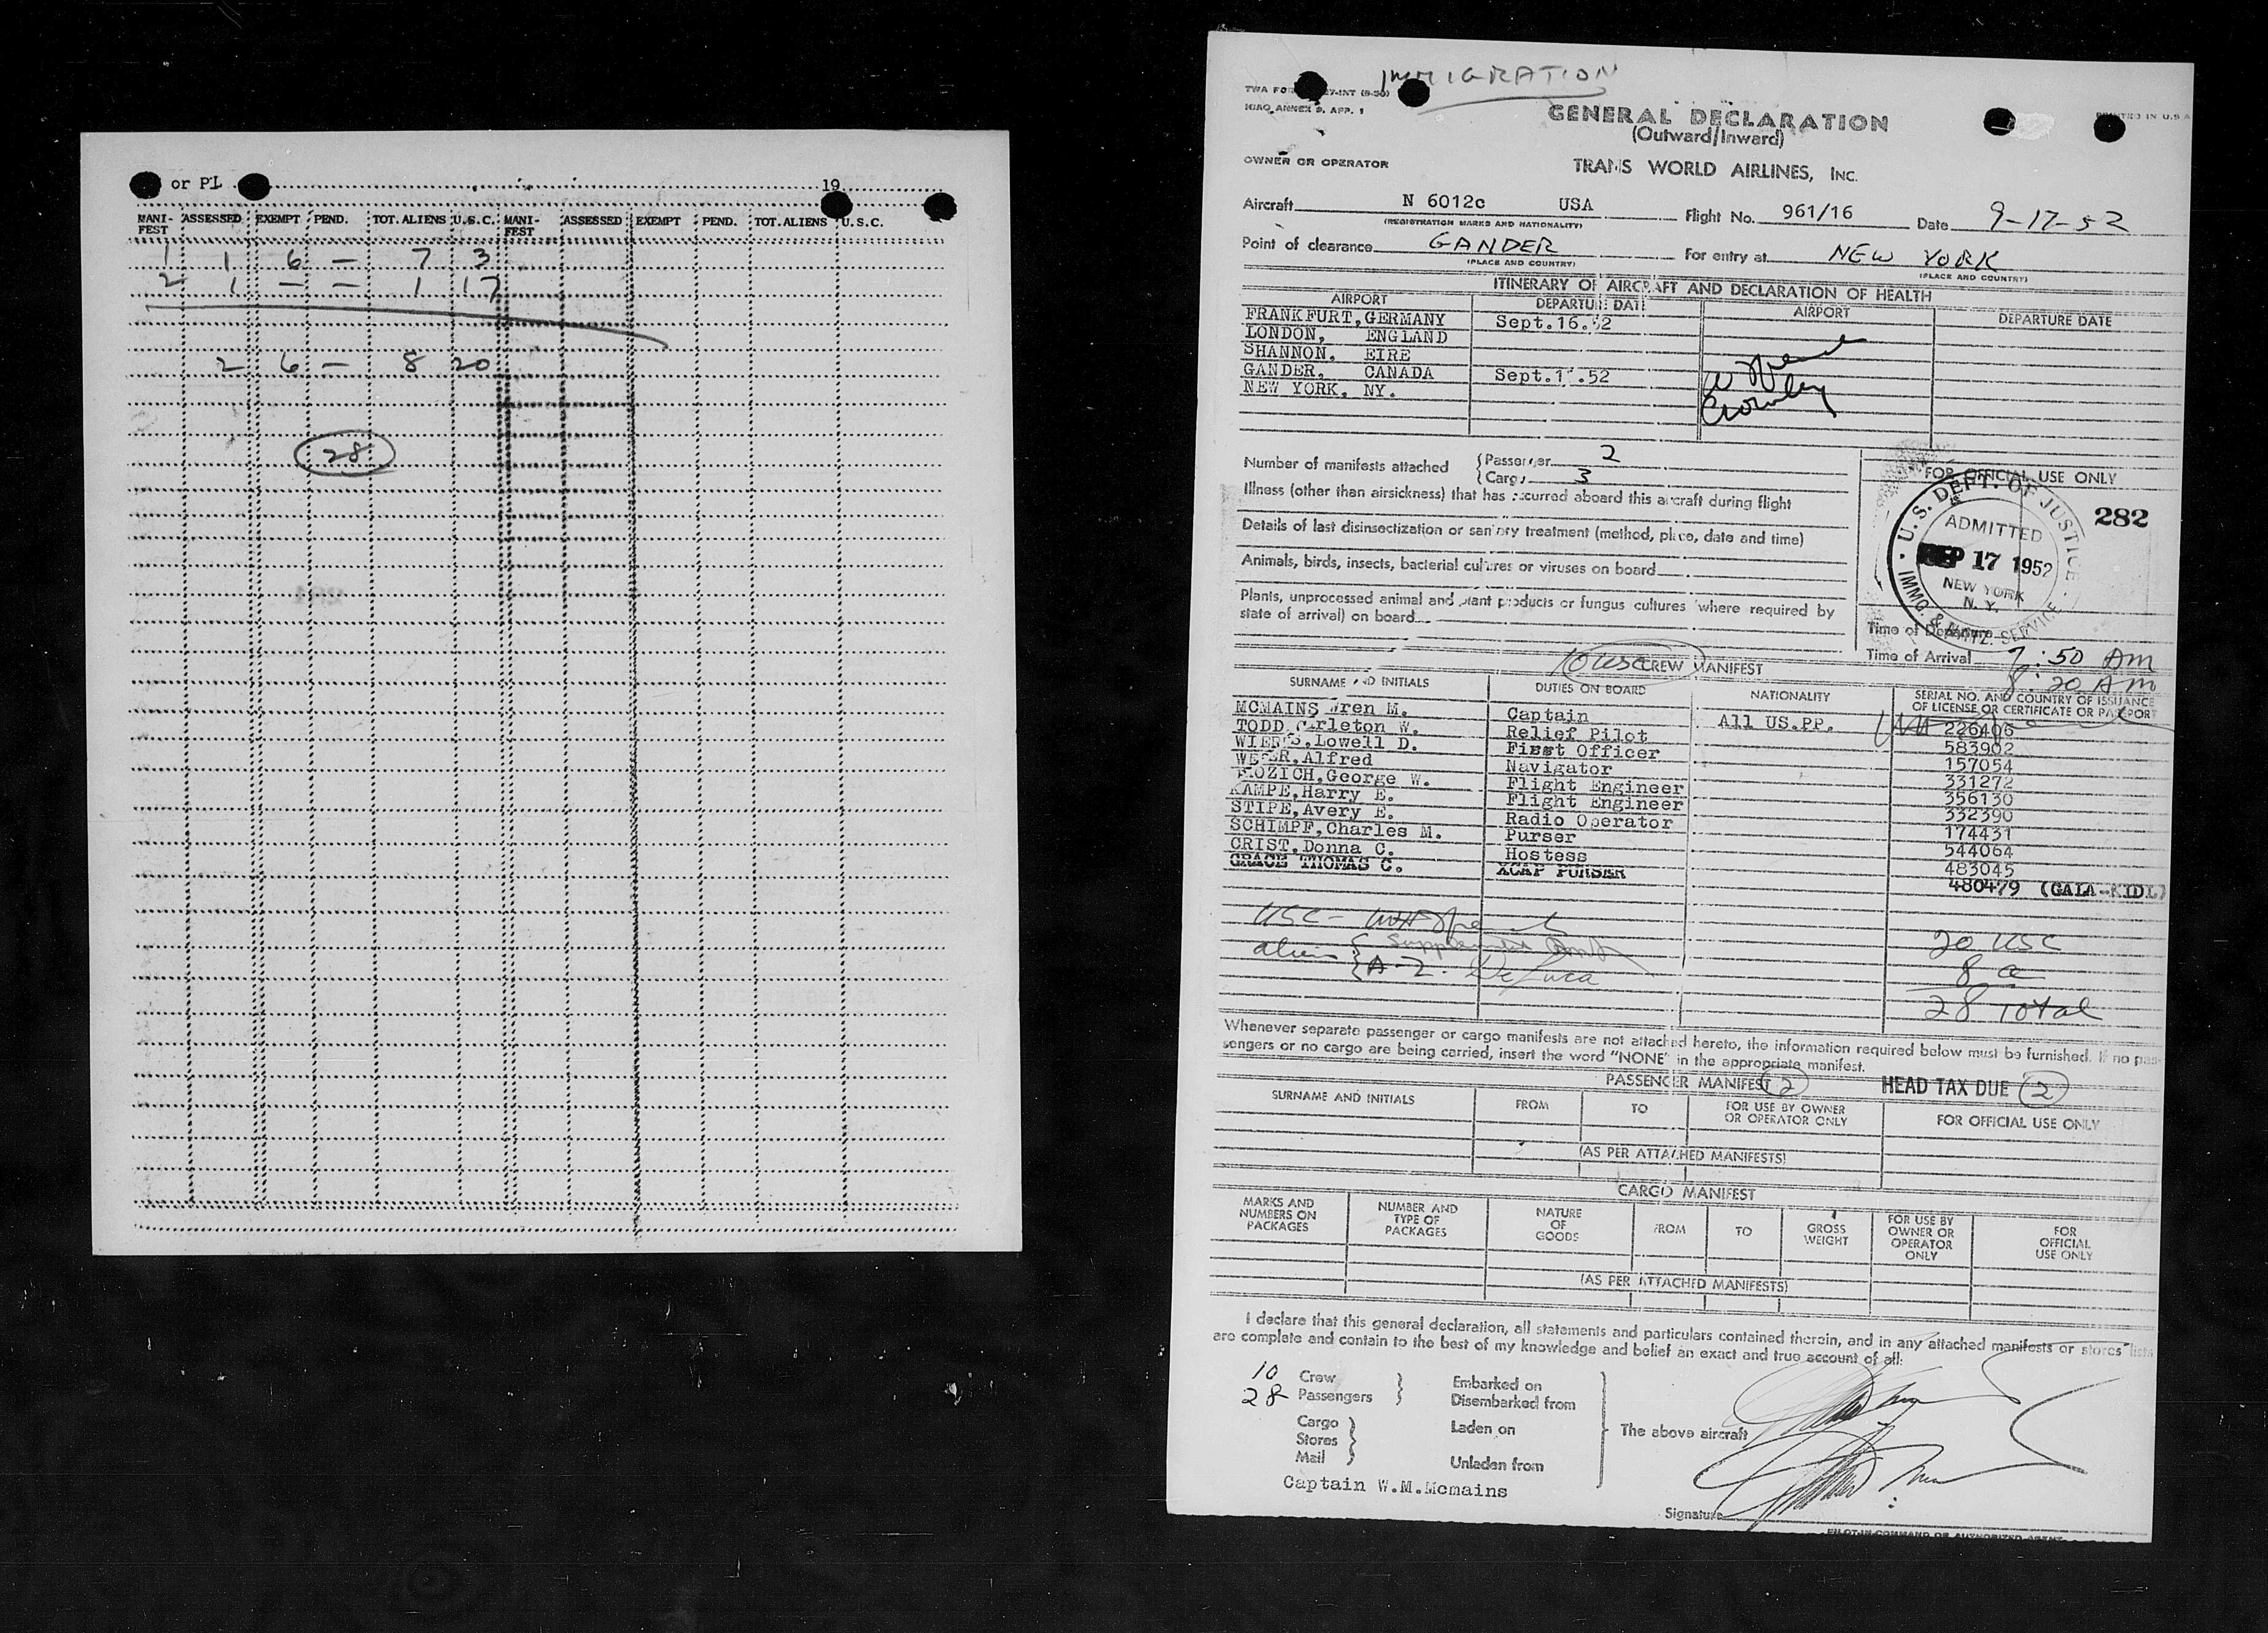 or PL 19
MANI- ASSESSED EXEMPT PEND. TOT. ALIENS U.S.C. MANI- ASSESSED EXEMPT PEND. TOT. ALIENS U.S.C.
FEST FEST
1 1 6 — 7 3
2 1 — — 1 17
2 6 — 8 20
28
IMMIGRATION
TWA FO 27-INT (8-50)
ICAO ANNEX 9, APP. 1
GENERAL DECLARATION
(Outward/Inward)
PRINTED IN U.S.A
OWNER OR OPERATOR TRANS WORLD AIRLINES, INC.
Aircraft N 6012c USA Flight No. 961/16 Date 9-17-52
(REGISTRATION MARKS AND NATIONALITY)
Point of clearance GANDER For entry at NEW YORK
(PLACE AND COUNTRY) (PLACE AND COUNTRY)
ITINERARY OF AIRCRAFT AND DECLARATION OF HEALTH
AIRPORT DEPARTURE DATE AIRPORT DEPARTURE DATE
FRANKFURT, GERMANY Sept.16.52
LONDON, ENGLAND
SHANNON, EIRE
GANDER, CANADA Sept.17.52
NEW YORK, NY.
Crowley
Number of manifests attached {Passenger 2
{Cargo 3
FOR OFFICIAL USE ONLY
Illness (other than airsickness) that has occurred aboard this aircraft during flight
Details of last disinsectization or sanitary treatment (method, place, date and time)
Animals, birds, insects, bacterial cultures or viruses on board
Plants, unprocessed animal and plant products or fungus cultures (where required by
state of arrival) on board
282
U.S. DEPT. OF JUSTICE
ADMITTED
SEP 17 1952
NEW YORK
N. Y.
IMMG. & NATZ. SERVICE
Time of Departure
Time of Arrival 7:50 AM
8:20 AM
10 USC CREW MANIFEST
SURNAME AND INITIALS DUTIES ON BOARD NATIONALITY SERIAL NO. AND COUNTRY OF ISSUANCE
OF LICENSE OR CERTIFICATE OR PASSPORT
MCMAINS Wren M. Captain All US.PP. 226406
TODD, Carleton W. Relief Pilot 583902
WIERS, Lowell D. First Officer 157054
WEBER, Alfred Navigator 331272
ROZICH, George W. Flight Engineer 356130
KAMPE, Harry E. Flight Engineer 332390
STIPE, Avery E. Radio Operator 174431
SCHIMPF, Charles M. Purser 544064
CRIST, Donna C. Hostess 483045
GRACE THOMAS C. XCAP PURSER 480479 (GALA-KIDL)
USC -
20 USC
alien { Supplement
{ A-2. DeLuca
8 a
28 Total
Whenever separate passenger or cargo manifests are not attached hereto, the information required below must be furnished. If no pas-
sengers or no cargo are being carried, insert the word "NONE" in the appropriate manifest.
PASSENGER MANIFEST 2 HEAD TAX DUE 2
SURNAME AND INITIALS FROM TO FOR USE BY OWNER
OR OPERATOR ONLY FOR OFFICIAL USE ONLY
(AS PER ATTACHED MANIFESTS)
CARGO MANIFEST
MARKS AND
NUMBERS ON
PACKAGES
NUMBER AND
TYPE OF
PACKAGES
NATURE
OF
GOODS
FROM
TO
GROSS
WEIGHT
FOR USE BY
OWNER OR
OPERATOR
ONLY
FOR
OFFICIAL
USE ONLY
(AS PER ATTACHED MANIFESTS)
I declare that this general declaration, all statements and particulars contained therein, and in any attached manifests or stores lists
are complete and contain to the best of my knowledge and belief an exact and true account of all:
10 Crew } Embarked on
28 Passengers } Disembarked from
Cargo } Laden on
Stores
Mail } Unladen from
The above aircraft
Captain W.M.Mcmains
Signature
PILOT-IN-COMMAND OR AUTHORIZED AGENT